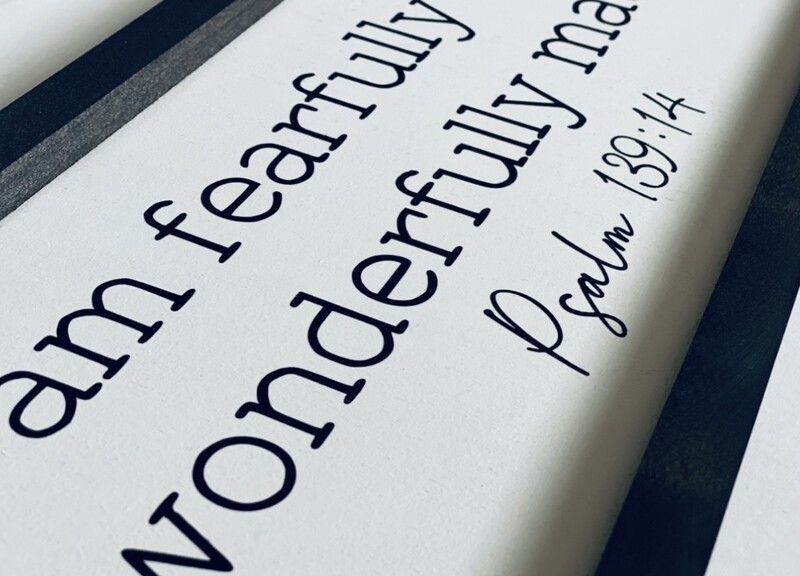 am fearfully
wonderfully ma
Psalm 139:14